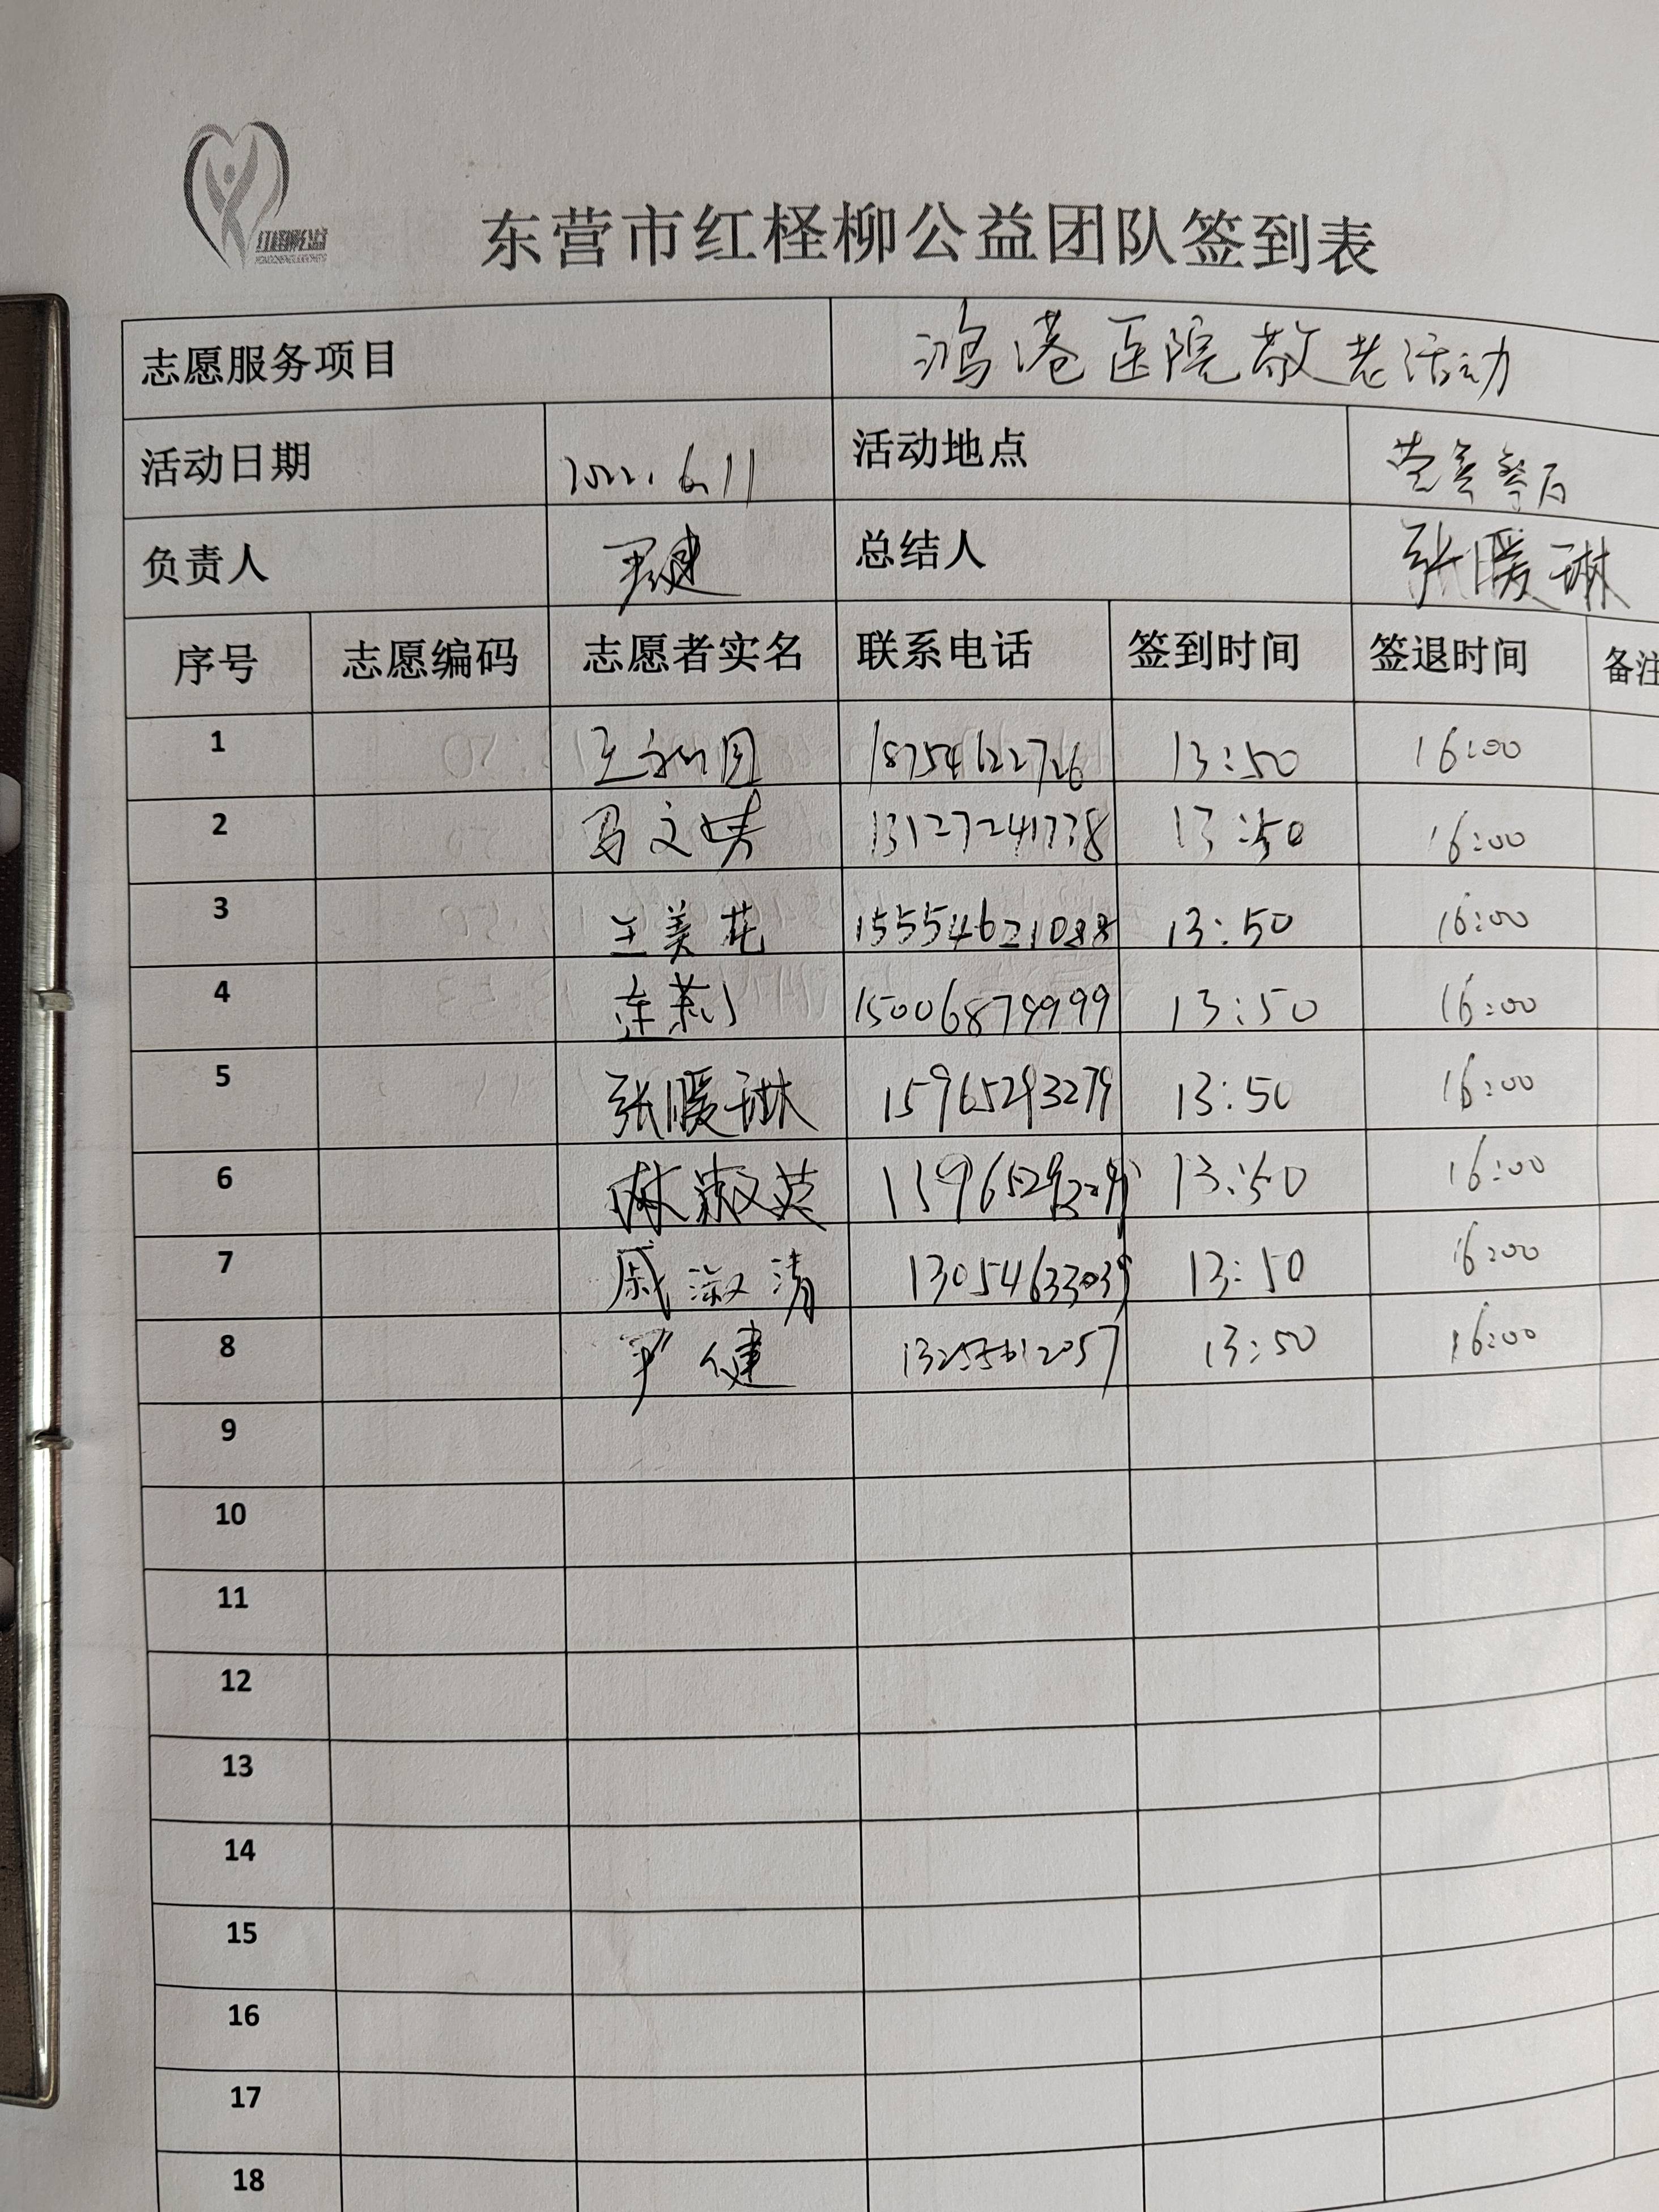 红柽柳公益
东营市红柽柳公益团队签到表
志愿服务项目 鸿港医院敬老活动
活动日期 2022.6.11 活动地点
负责人 尹健 总结人 张暖琳
序号 志愿编码 志愿者实名 联系电话 签到时间 签退时间 备注
1 18754622726 13:50 16:00
2 马文 13127241738 13:50 16:00
3 王美花 15554621088 13:50 16:00
4 15006879999 13:50 16:00
5 张暖琳 15965293279 13:50 16:00
6 淑英 13:50 16:00
7 戚淑清 13054633039 13:50 16:00
8 尹健 13:50 16:00
9
10
11
12
13
14
15
16
17
18